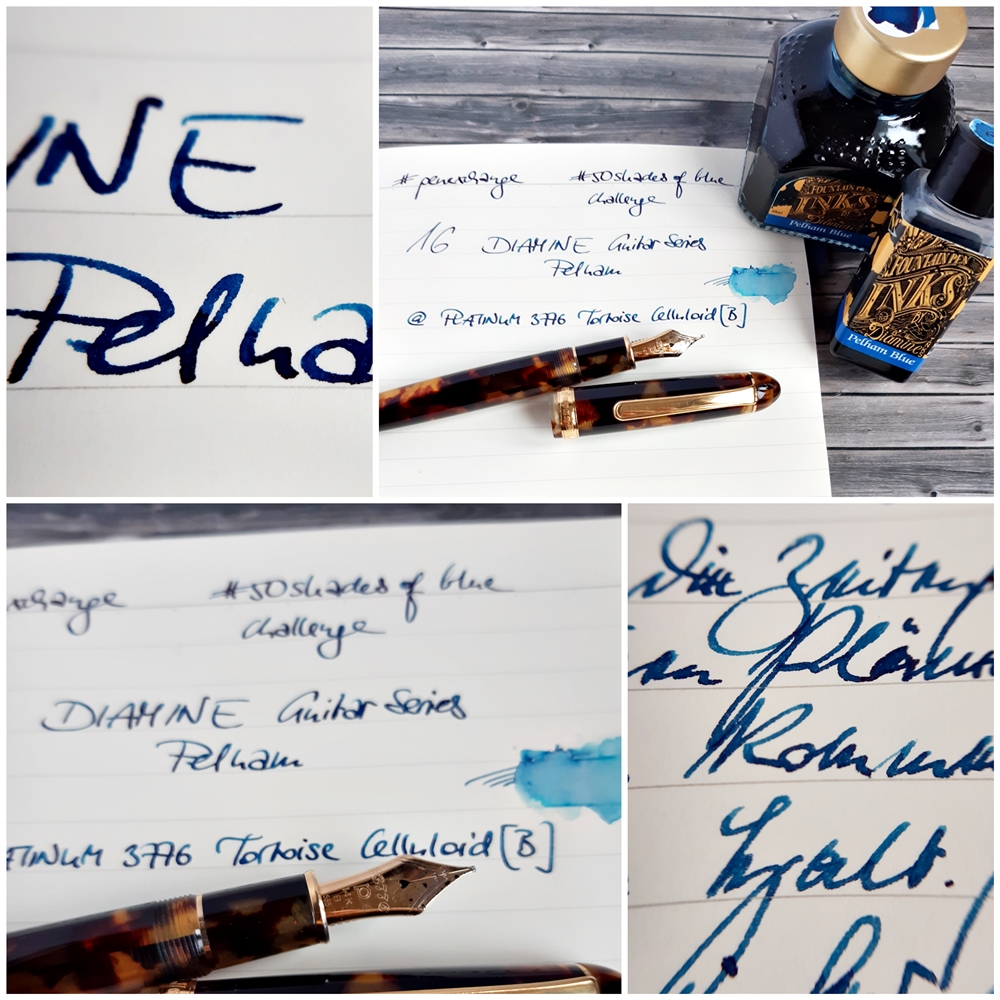 INE
Pelha
#penexchange #50shades of blue
challenge
16 DIAMINE Guitar Series
Pelham
@ PLATINUM 3776 Tortoise Celluloid [B]
FOUNTAIN PEN
INKS
Diamine
Pelham Blue
FOUNTAIN PEN
INKS
Diamine
Pelham Blue
exchange #50shades of blue
challenge
DIAMINE Guitar Series
Pelham
ATINUM 3776 Tortoise Celluloid [B]